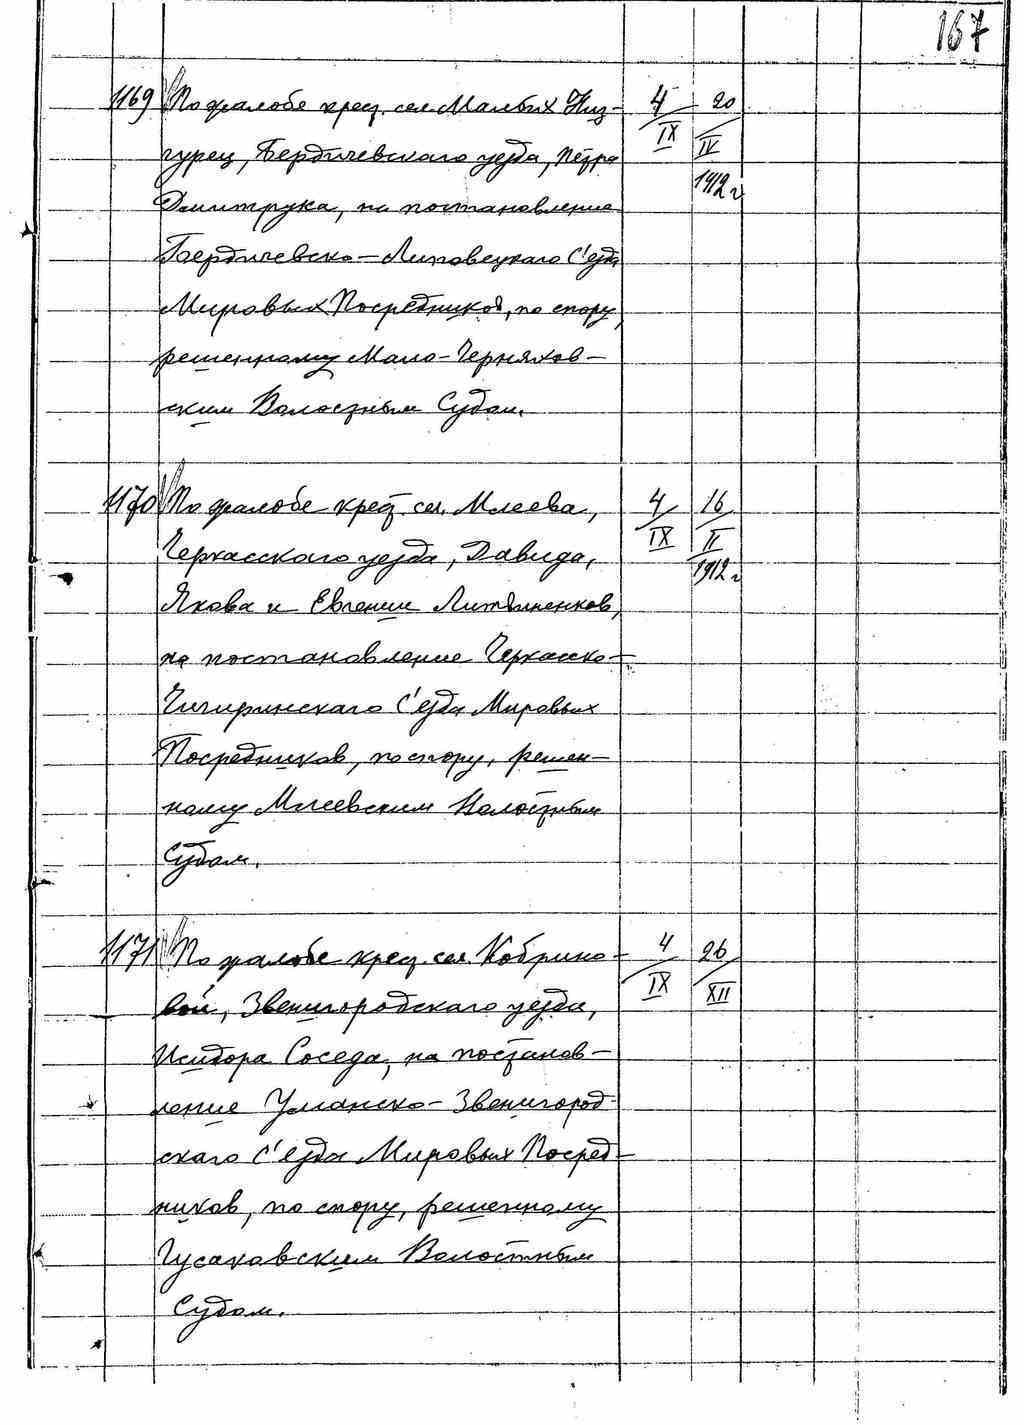 167
1169 По жалобе крест. сел. Малых Низ- 4/IX 20/IV 1912 г.
гурец, Бердичевскаго уезда, Петра
Дмитрука, на постановление
Бердичевско-Липовецкаго С'езда
Мировых Посредников, по спору,
решенному Мало-Черняхов-
ским Волостным Судом.
1170 По жалобе крест. сел. Млеева, 4/IX 16/II 1912 г.
Черкасскаго уезда, Давида,
Якова и Евгении Литвиненков,
на постановление Черкасско-
Чигиринскаго С'езда Мировых
Посредников, по спору, решен-
ному Млеевским Волостным
Судом.
1171 По жалобе крест. сел. Кобрино- 4/IX 26/XII
вой, Звенигородскаго уезда,
Исидора Соседа, на постанов-
ление Уманско-Звенигород-
скаго С'езда Мировых Посред-
ников, по спору, решенному
Гусаковским Волостным
Судом.